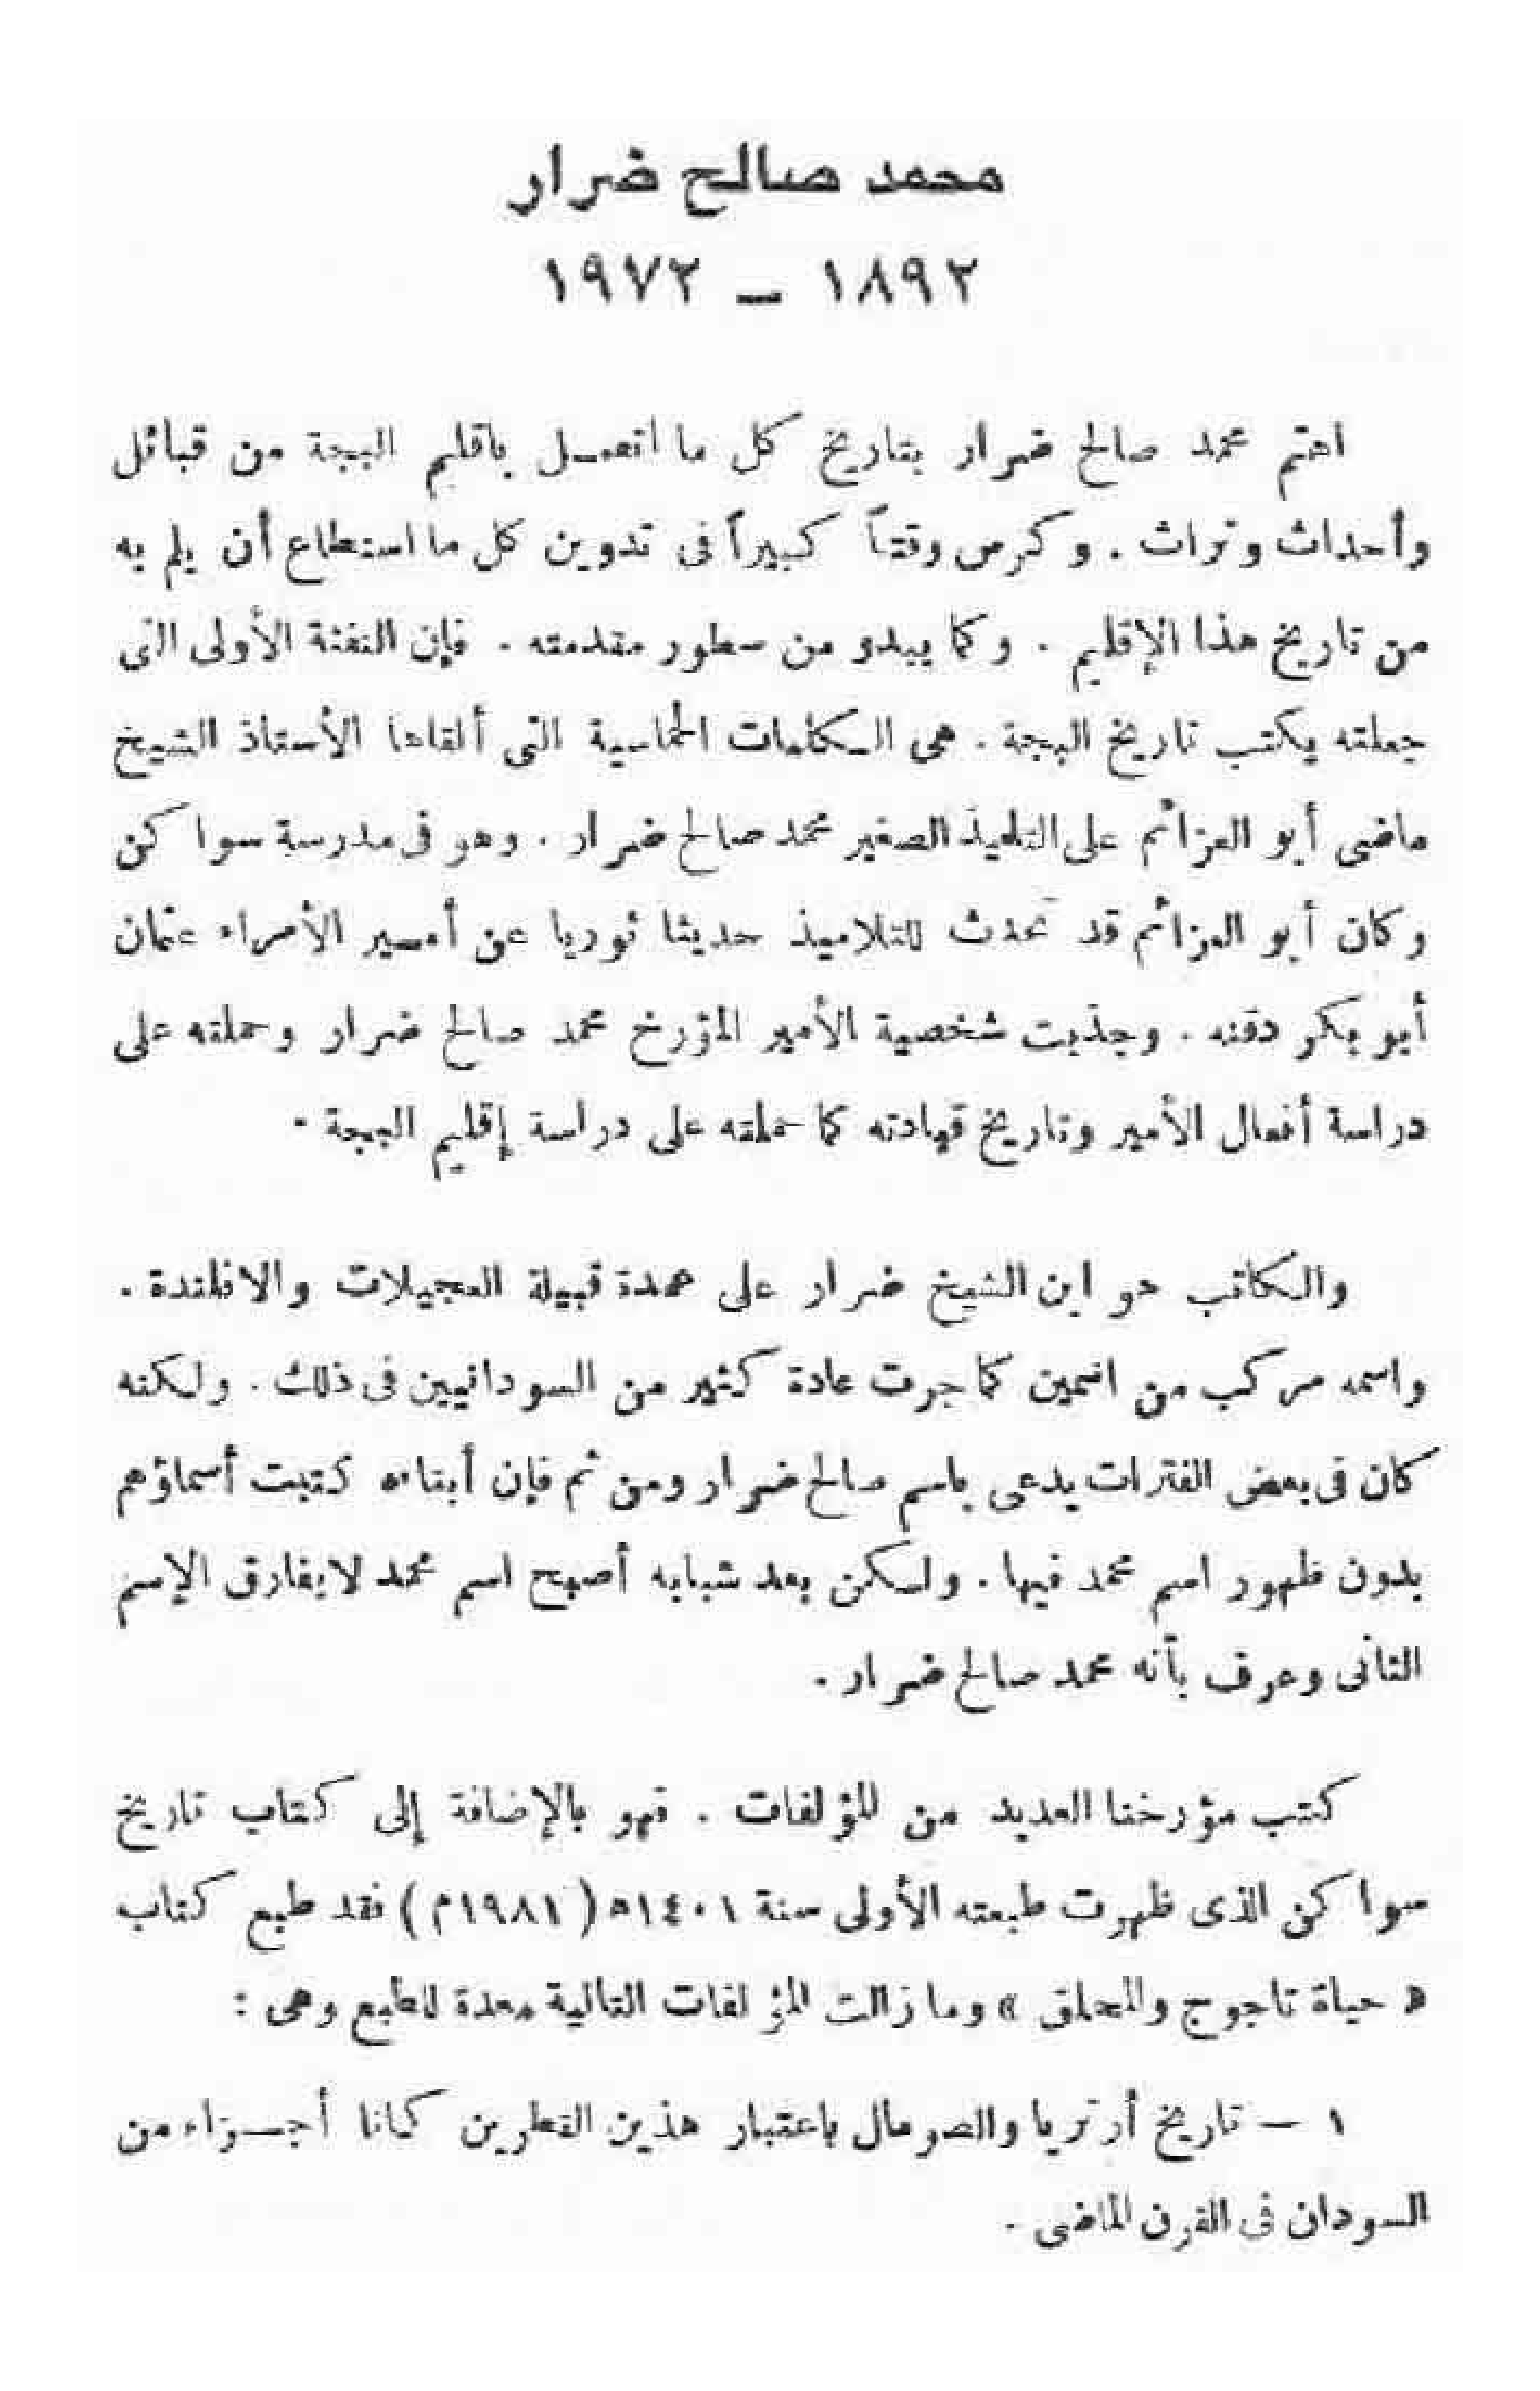 محمد صالح ضرار
١٨٩٢ – ١٩٧٢
اهتم محمد صالح ضرار بتاريخ كل ما اتصل باقليم البجة من قبائل
وأحداث وتراث . وكرس وقتاً كبيراً فى تدوين كل ما استطاع أن يلم به
من تاريخ هذا الإقليم . وكما يبدو من سطور مقدمته . فإن النفثة الأولى التى
جعلته يكتب تاريخ البجة . هى الكلمات الحماسية التى ألقاها الأستاذ الشيخ
ماضى أبو العزائم على التلميذ الصغير محمد صالح ضرار . وهو فى مدرسة سواكن
وكان أبو العزائم قد تحدث للتلاميذ حديثا ثوريا عن أمير الأمراء عثمان
أبو بكر دقنه . وجذبت شخصية الأمير المؤرخ محمد صالح ضرار وحملته على
دراسة أفعال الأمير وتاريخ قيادته كما حملته على دراسة إقليم البجة .
والكاتب هو ابن الشيخ ضرار على عمدة قبيلة العجيلات والافلندة .
واسمه مركب من اسمين كما جرت عادة كثير من السودانيين فى ذلك . ولكنه
كان فى بعض الفترات يدعى باسم صالح ضرار ومن ثم فإن أبناءه كتبت أسماؤهم
بدون ظهور اسم محمد فيها . ولكن بعد شبابه أصبح اسم محمد لايفارق الإسم
الثانى وعرف بأنه محمد صالح ضرار .
كتب مؤرخنا العديد من المؤلفات . فهو بالإضافة إلى كتاب تاريخ
سواكن الذى ظهرت طبعته الأولى سنة ١٤٠١ه (١٩٨١م) فقد طبع كتاب
« حياة تاجوج والمحلق » وما زالت المؤلفات التالية معدة للطبع وهى :
١ – تاريخ أرتريا والصومال باعتبار هذين القطرين كانا أجزاء من
السودان فى القرن الماضى .